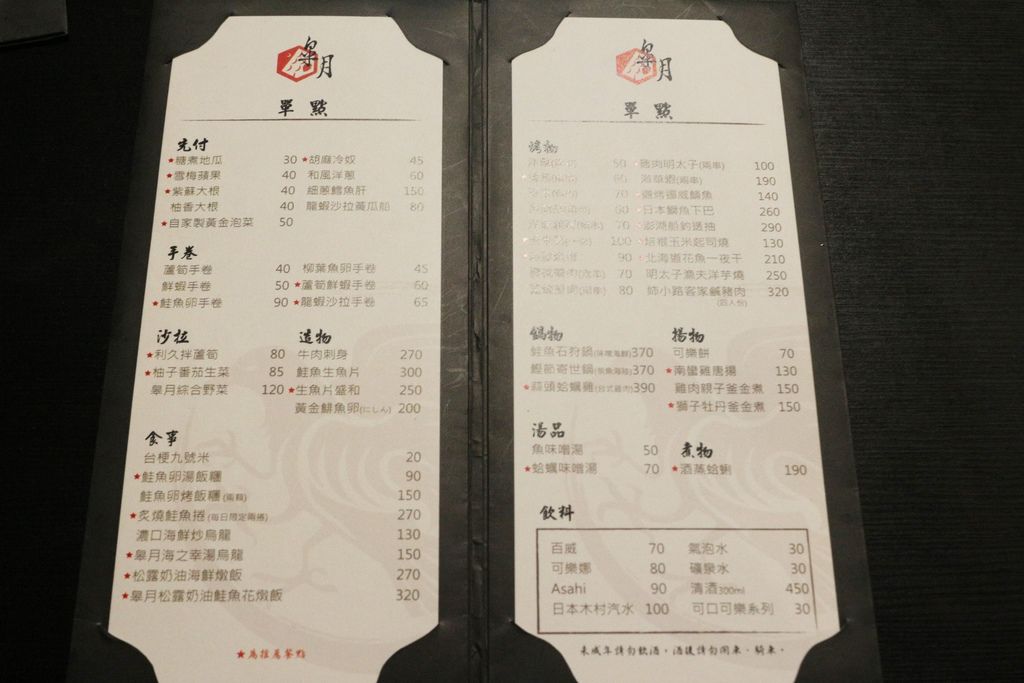 皋月
單點
先付
★糖煮地瓜 30 ★胡麻冷奴 45
★雪梅蘋果 40 和風洋蔥 60
★紫蘇大根 40 細蔥鱈魚肝 150
柚香大根 40 龍蝦沙拉黃瓜船 80
★自家製黃金泡菜 50
手卷
蘆筍手卷 40 柳葉魚卵手卷 45
鮮蝦手卷 50 ★蘆筍鮮蝦手卷 60
★鮭魚卵手卷 90 ★龍蝦沙拉手卷 65
沙拉 造物
★利久拌蘆筍 80 牛肉刺身 270
★柚子番茄生菜 85 鮭魚生魚片 300
皋月綜合野菜 120 ★生魚片盛和 250
黃金鯡魚卵(にしん) 200
食事
台梗九號米 20
★鮭魚卵湯飯糰 90
鮭魚卵烤飯糰(兩顆) 150
★炙燒鮭魚捲(每日限定兩捲) 270
濃口海鮮炒烏龍 130
★皋月海之幸湯烏龍 150
★松露奶油海鮮燉飯 270
★皋月松露奶油鮭魚花燉飯 320
★為推薦餐點
皋月
單點
烤物
50 ★雞肉明太子(兩串) 100
60 (兩串) 190
70 ★鹽烤挪威鯖魚 140
60 ★日本鰤魚下巴 260
70 ★澎湖船釣透抽 290
100 ★培根玉米起司燒 130
90 ★北海道花魚一夜干 210
70 明太子漁夫洋芋燒 250
80 姉小路客家鹹豬肉 320
(四人份)
鍋物 揚物
鮭魚石狩鍋(味噌海鮮) 370 可樂餅 70
鰹節寄世鍋 370 ★南蠻雞唐揚 130
★蒜頭蛤蠣雞(台式雞肉) 390 雞肉親子釜金煮 150
★獅子牡丹釜金煮 150
湯品 煮物
魚味噌湯 50
★蛤蠣味噌湯 70 ★酒蒸蛤蜊 190
飲料
百威 70 氣泡水 30
可樂娜 80 礦泉水 30
Asahi 90 清酒300ml 450
日本木村汽水 100 可口可樂系列 30
未成年請勿飲酒，酒後請勿開車、騎車。